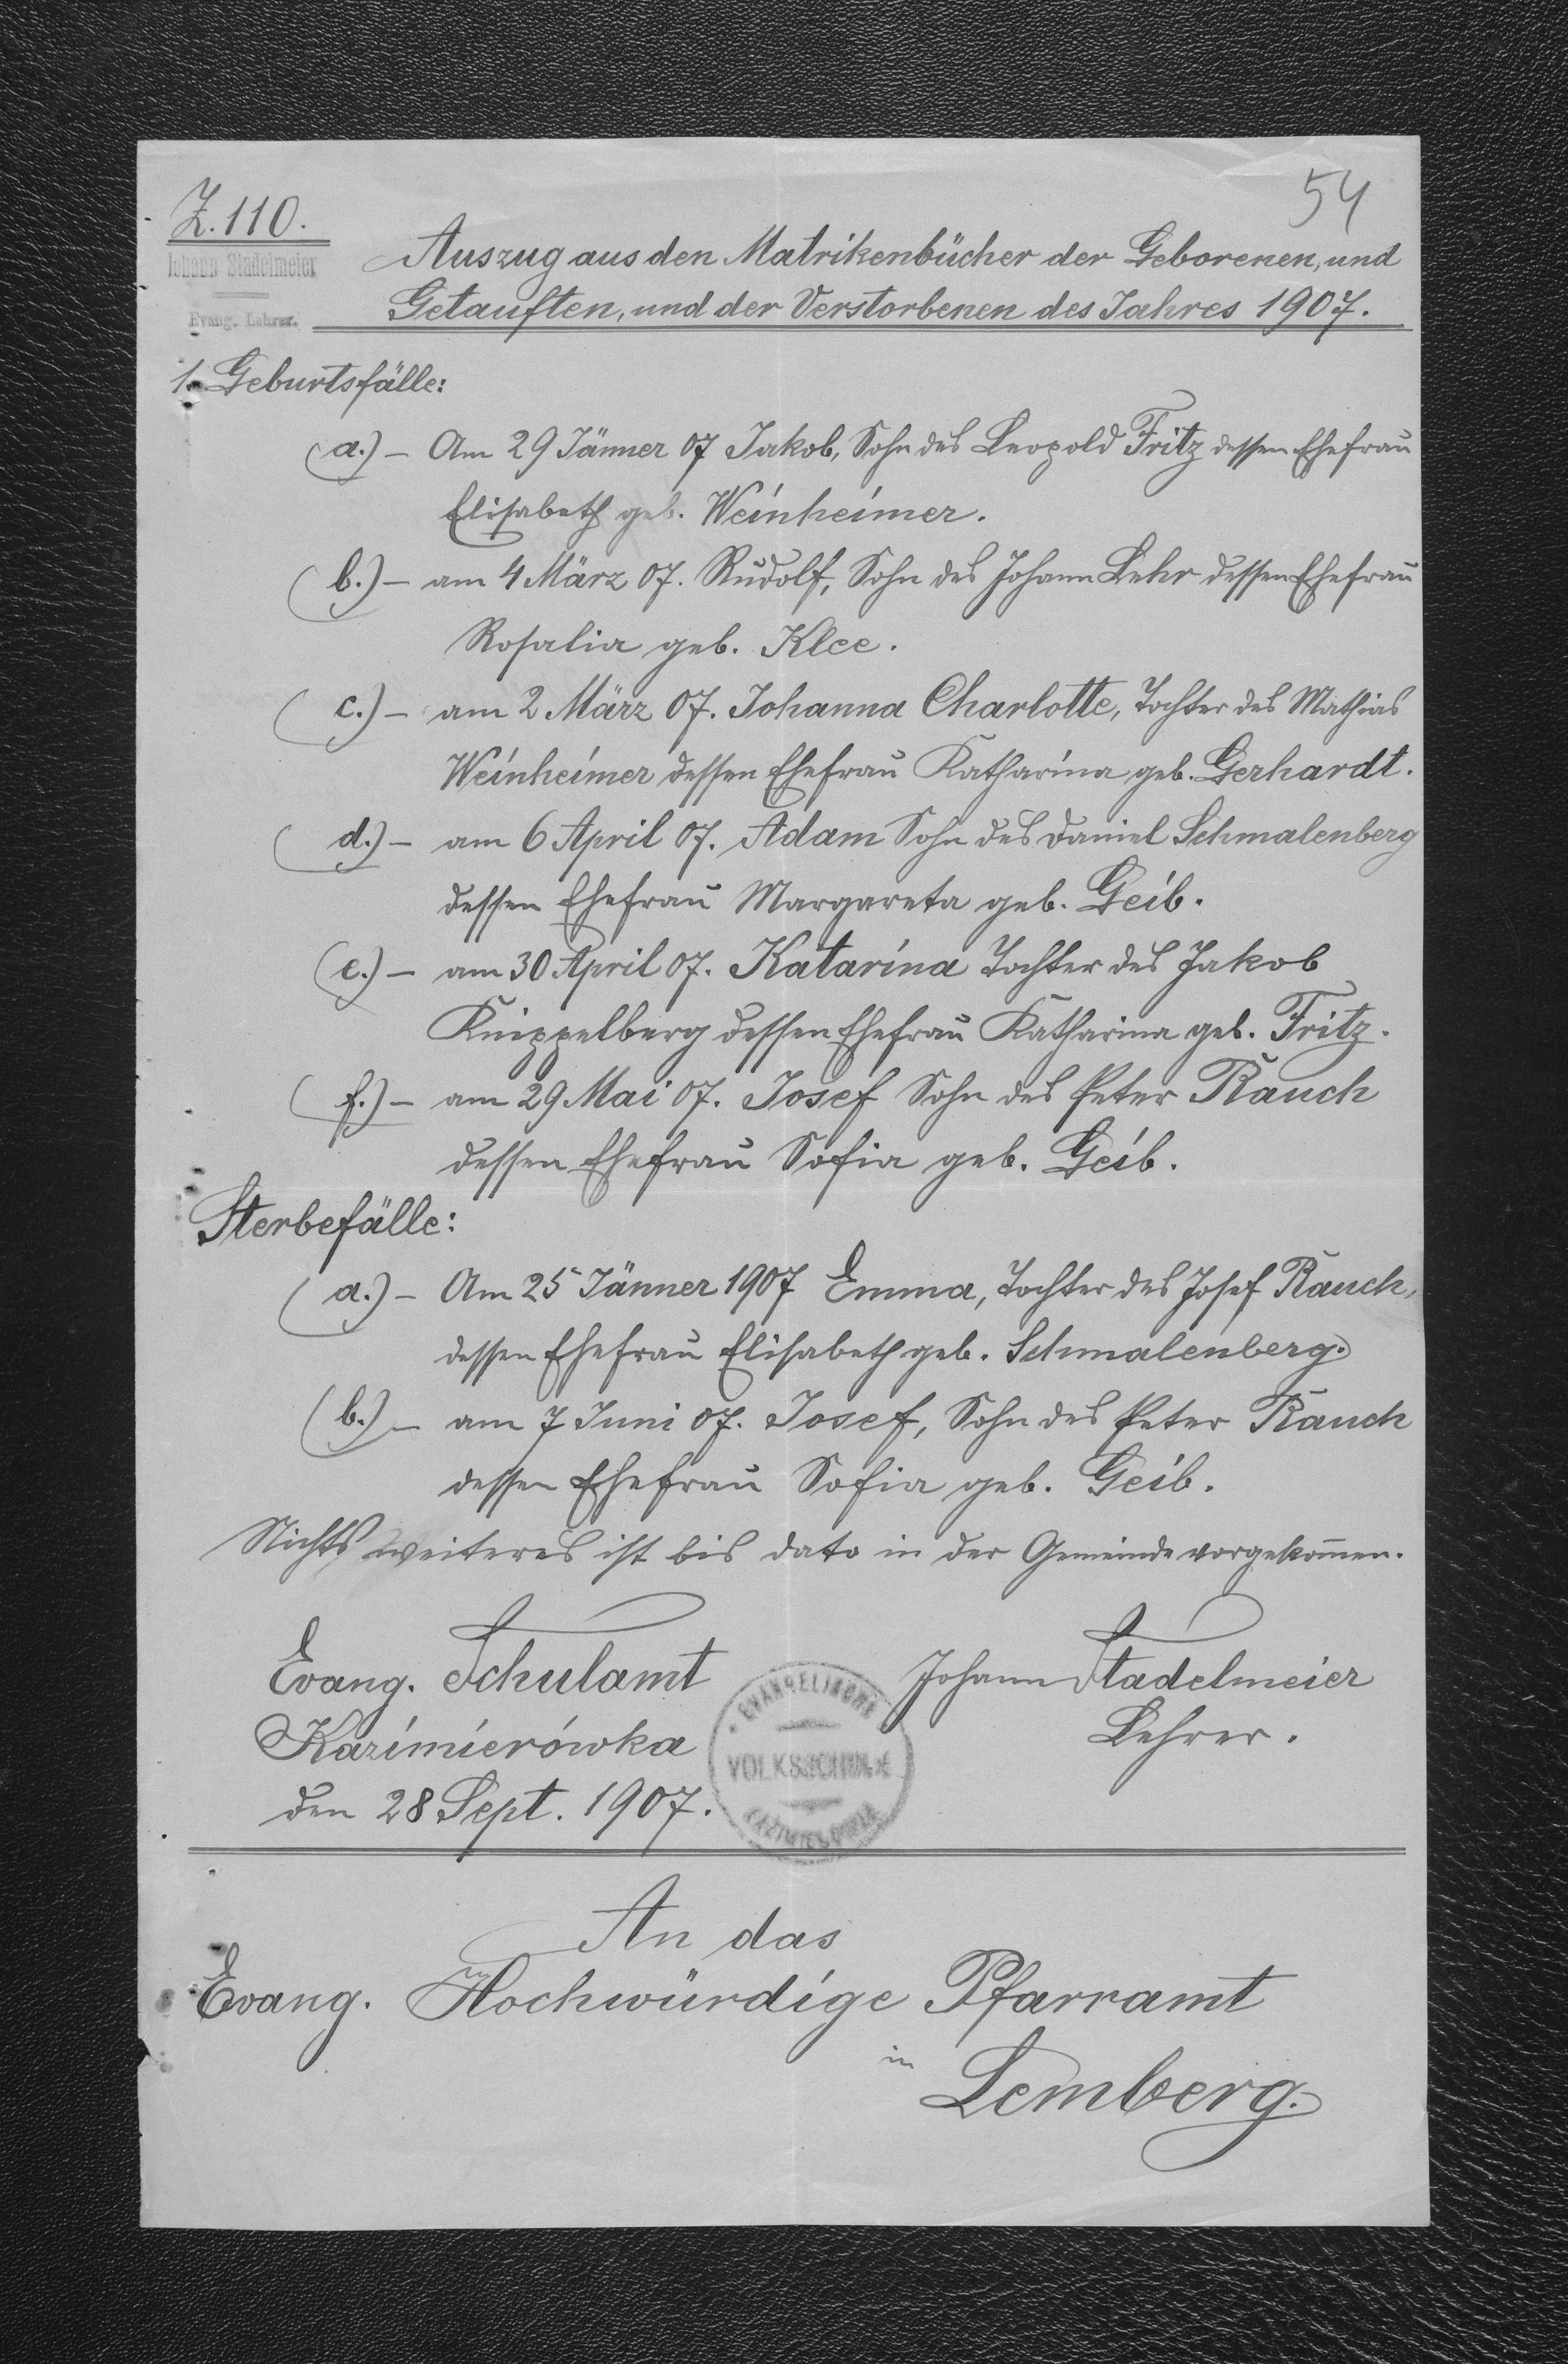 54
Z. 110.
Johann Stadelmeier
Evang. Lehrer.
Auszug aus den Matrikenbücher der Geborenen, und
Getauften, und der Verstorbenen des Jahres 1907.
1. Geburtsfälle:
(a.) – Am 29 Jänner 07 Jakob, Sohn des Leopold Fritz dessen Ehefrau
Elisabeth geb. Weinheimer.
(b.) – am 4 März 07. Rudolf, Sohn des Johann Lehr dessen Ehefrau
Rosalia geb. Klee.
(c.) – am 2 März 07. Johanna Charlotte, Tochter des Mathias
Weinheimer dessen Ehefrau Katharina geb. Gerhardt.
(d.) – am 6 April 07. Adam Sohn des Daniel Schmalenberg
dessen Ehefrau Margareta geb. Geib.
(e.) – am 30 April 07. Katarina Tochter des Jakob
Knieppelberg dessen Ehefrau Katharina geb. Fritz.
(f.) – am 29 Mai 07. Josef Sohn des Peter Rauch
dessen Ehefrau Sofia geb. Geib.
Sterbefälle:
(a.) – Am 25 Jänner 1907 Emma, Tochter des Josef Rauch,
dessen Ehefrau Elisabeth geb. Schmalenberg.
(b.) – am 7 Juni 07. Josef, Sohn des Peter Rauch
dessen Ehefrau Sofia geb. Geib.
Nichts weiteres ist bis dato in der Gemeinde vorgekom̄en.
Evang. Schulamt
Kazimierówka
den 28 Sept. 1907.
EVANGELISCHE
VOLKSSCHULE
KAZIMIERÓWKA
Johann Stadelmeier
Lehrer.
An das
Evang. Hochwürdige Pfarramt
in
Lemberg.